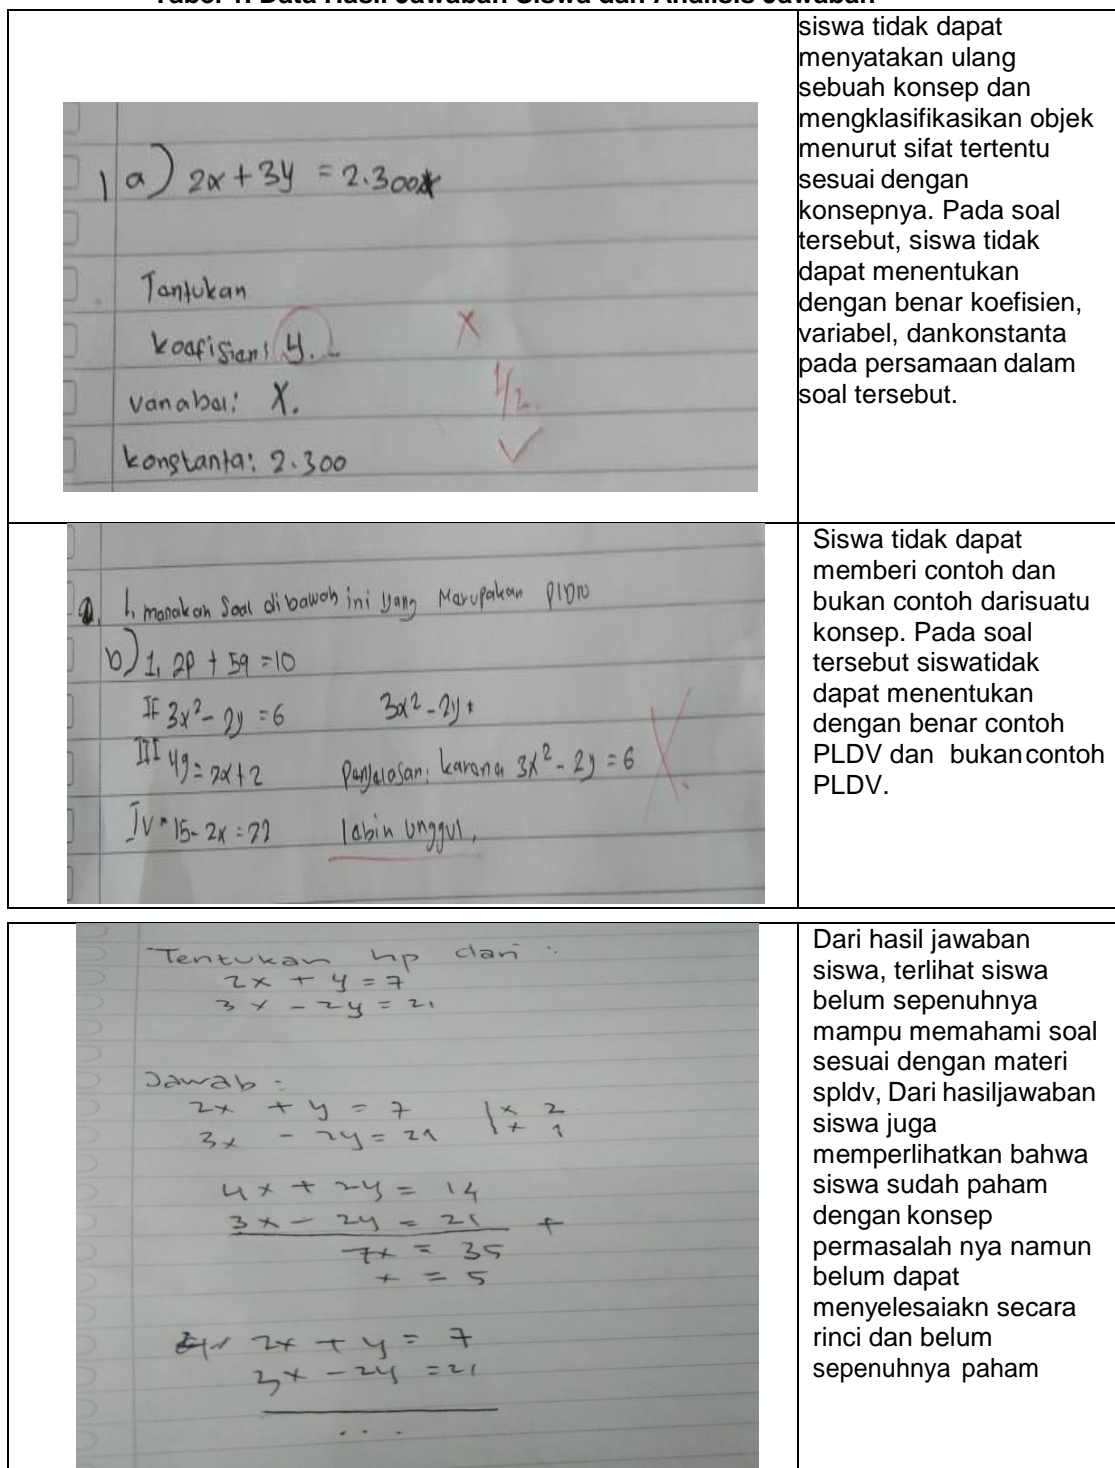 Tabel 1. Data Hasil Jawaban Siswa dan Analisis Jawaban
1 a) 2x + 3y = 2.300
Tantukan
koafisian: y.
X
vanabal: X.
1/2.
konstanta: 2.300
siswa tidak dapat
menyatakan ulang
sebuah konsep dan
mengklasifikasikan objek
menurut sifat tertentu
sesuai dengan
konsepnya. Pada soal
tersebut, siswa tidak
dapat menentukan
dengan benar koefisien,
variabel, dankonstanta
pada persamaan dalam
soal tersebut.
1, manakah Soal dibawah ini yang Marupakan PlDV
b) 1, 2p + 5q = 10
II 3x² - 2y = 6 3x² - 2y
III 4y = 2x + 2 Panjalasan: karana 3x² - 2y = 6
IV 15 - 2x = 22 labih unggul,
Siswa tidak dapat
memberi contoh dan
bukan contoh darisuatu
konsep. Pada soal
tersebut siswatidak
dapat menentukan
dengan benar contoh
PLDV dan bukancontoh
PLDV.
Tentukan hp dari :
2x + y = 7
3x - 2y = 21
Jawab :
2x + y = 7 | x 2
3x - 2y = 21 | x 1
4x + 2y = 14
3x - 2y = 21 +
7x = 35
x = 5
2x + y = 7
3x - 2y = 21
...
Dari hasil jawaban
siswa, terlihat siswa
belum sepenuhnya
mampu memahami soal
sesuai dengan materi
spldv, Dari hasiljawaban
siswa juga
memperlihatkan bahwa
siswa sudah paham
dengan konsep
permasalah nya namun
belum dapat
menyelesaiakn secara
rinci dan belum
sepenuhnya paham